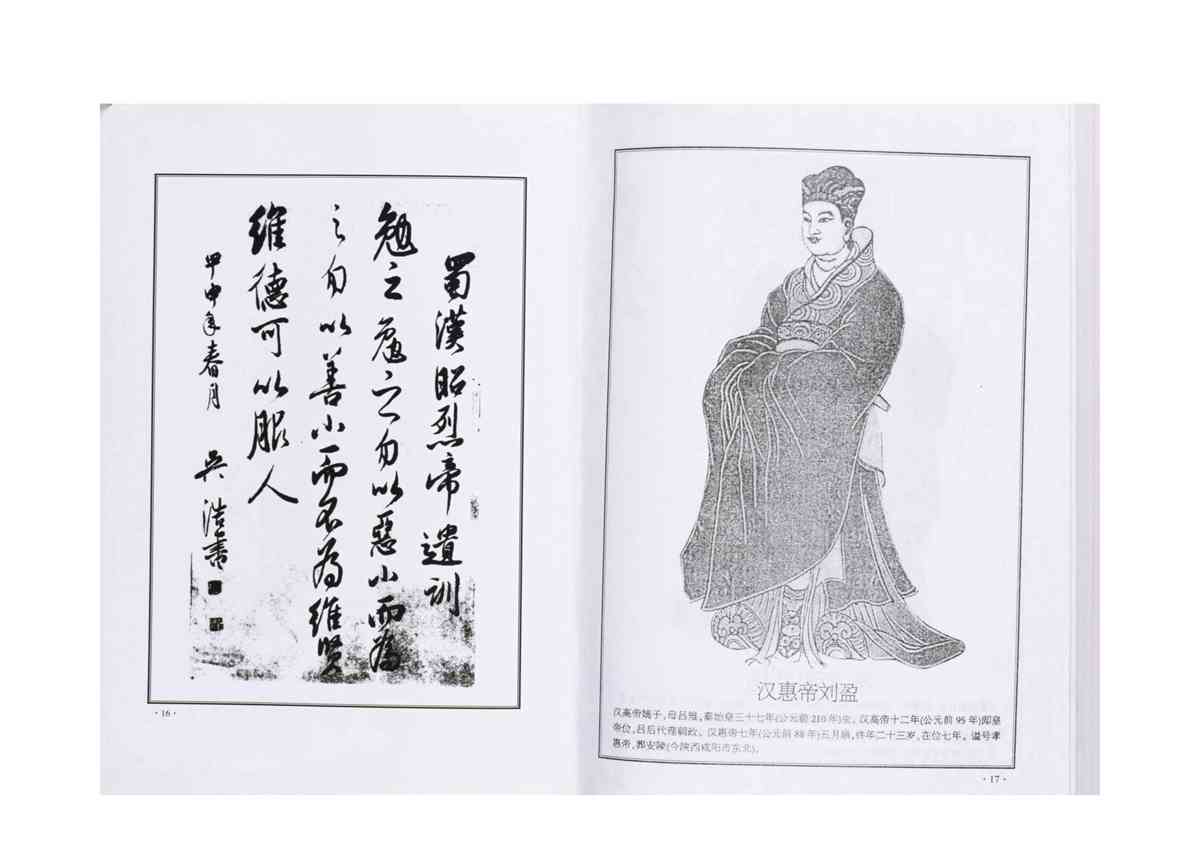 蜀漢昭烈帝遺訓
勉之勉之勿以惡小而為
之勿以善小而不為維賢
維德可以服人
甲申年春月
吳浩書
·16·
汉惠帝刘盈
汉高帝嫡子,母吕雉,秦始皇三十七年(公元前210年)生。汉高帝十二年(公元前95年)即皇
帝位,吕后代理朝政。汉惠帝七年(公元前88年)五月崩,终年二十三岁,在位七年。谥号孝
惠帝,葬安陵(今陕西咸阳市东北)。
·17·